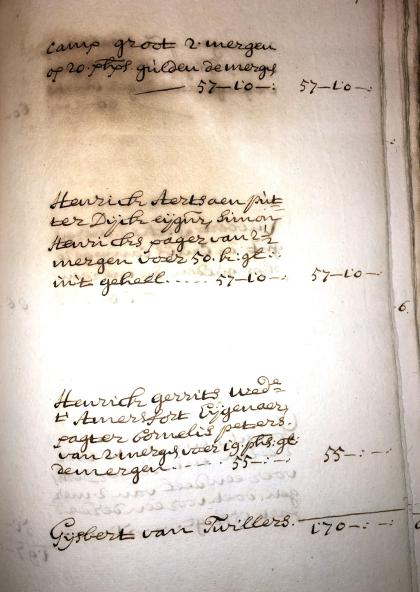 camp groot 2 mergen
op 20. phs gulden de mergs
57-10-: 57-10-:
Henrick Aertsaen put
ter Dijck eijgnr, Simon
Henricks pagter van 2½
mergen voer 50. k: gl:
uit geheel..... 57-10-: 57-10-:
Henrick Gerrits wede
t' Amersfort Eijgenaer,
pagter Cornelis peters.
van 2 mergs voer 19: phs: gl:
de mergen.... 55-:- 55-:-
Gijsbert van Twillers. 170-:-
6.